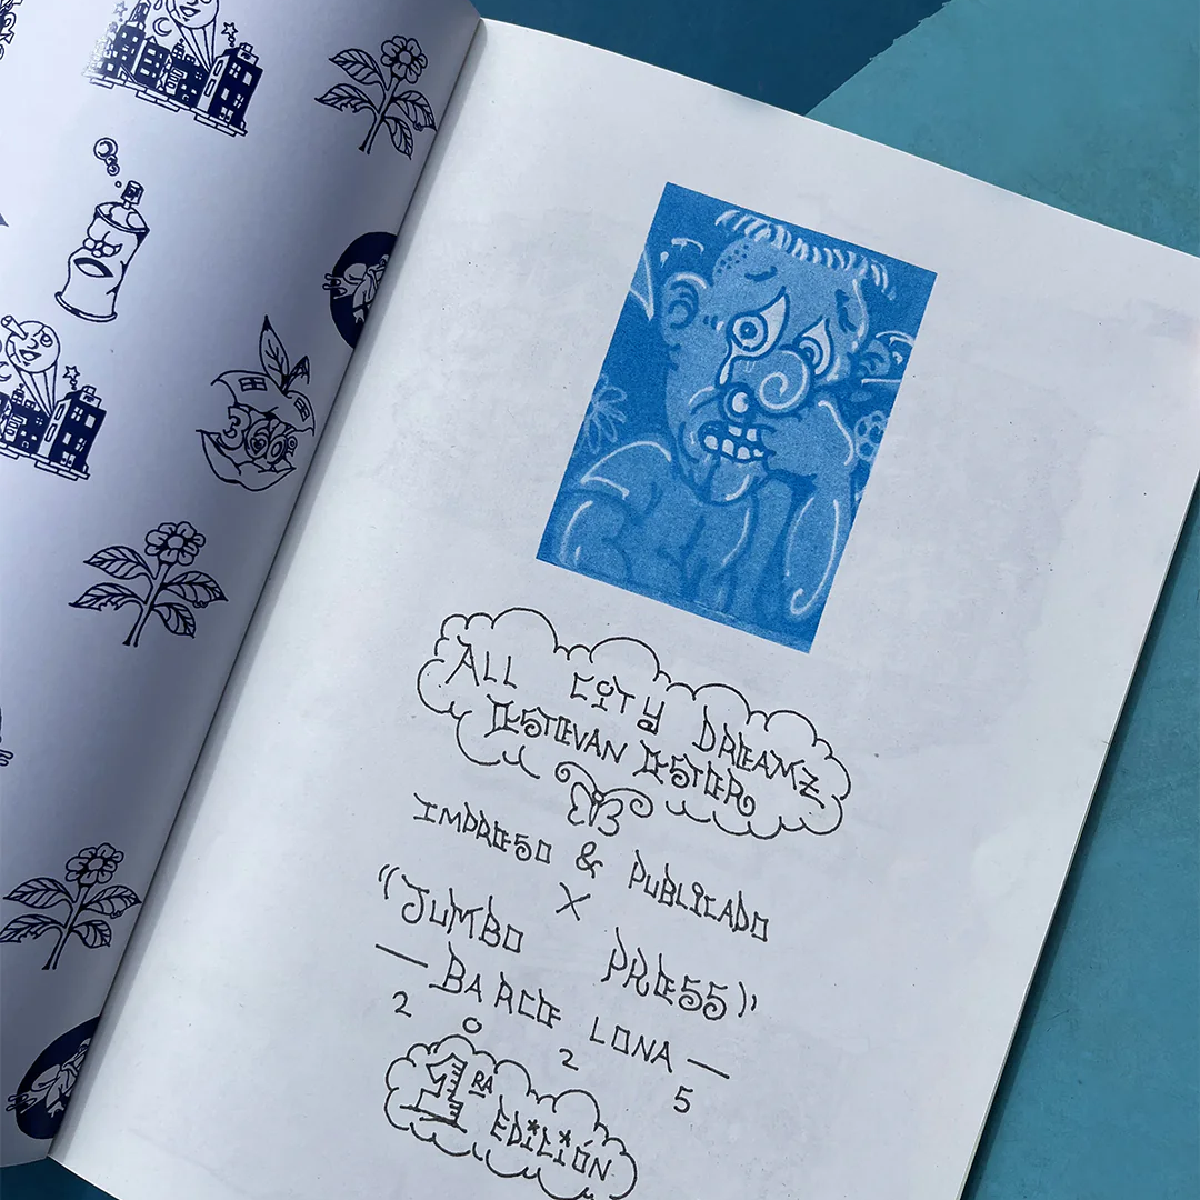 ALL CITY DREAMZ
ESTEVAN ESTER
IMPRESO & PUBLICADO
X
"JUMBO PRESS"
— BARCELONA —
2025
1RA EDICIÓN